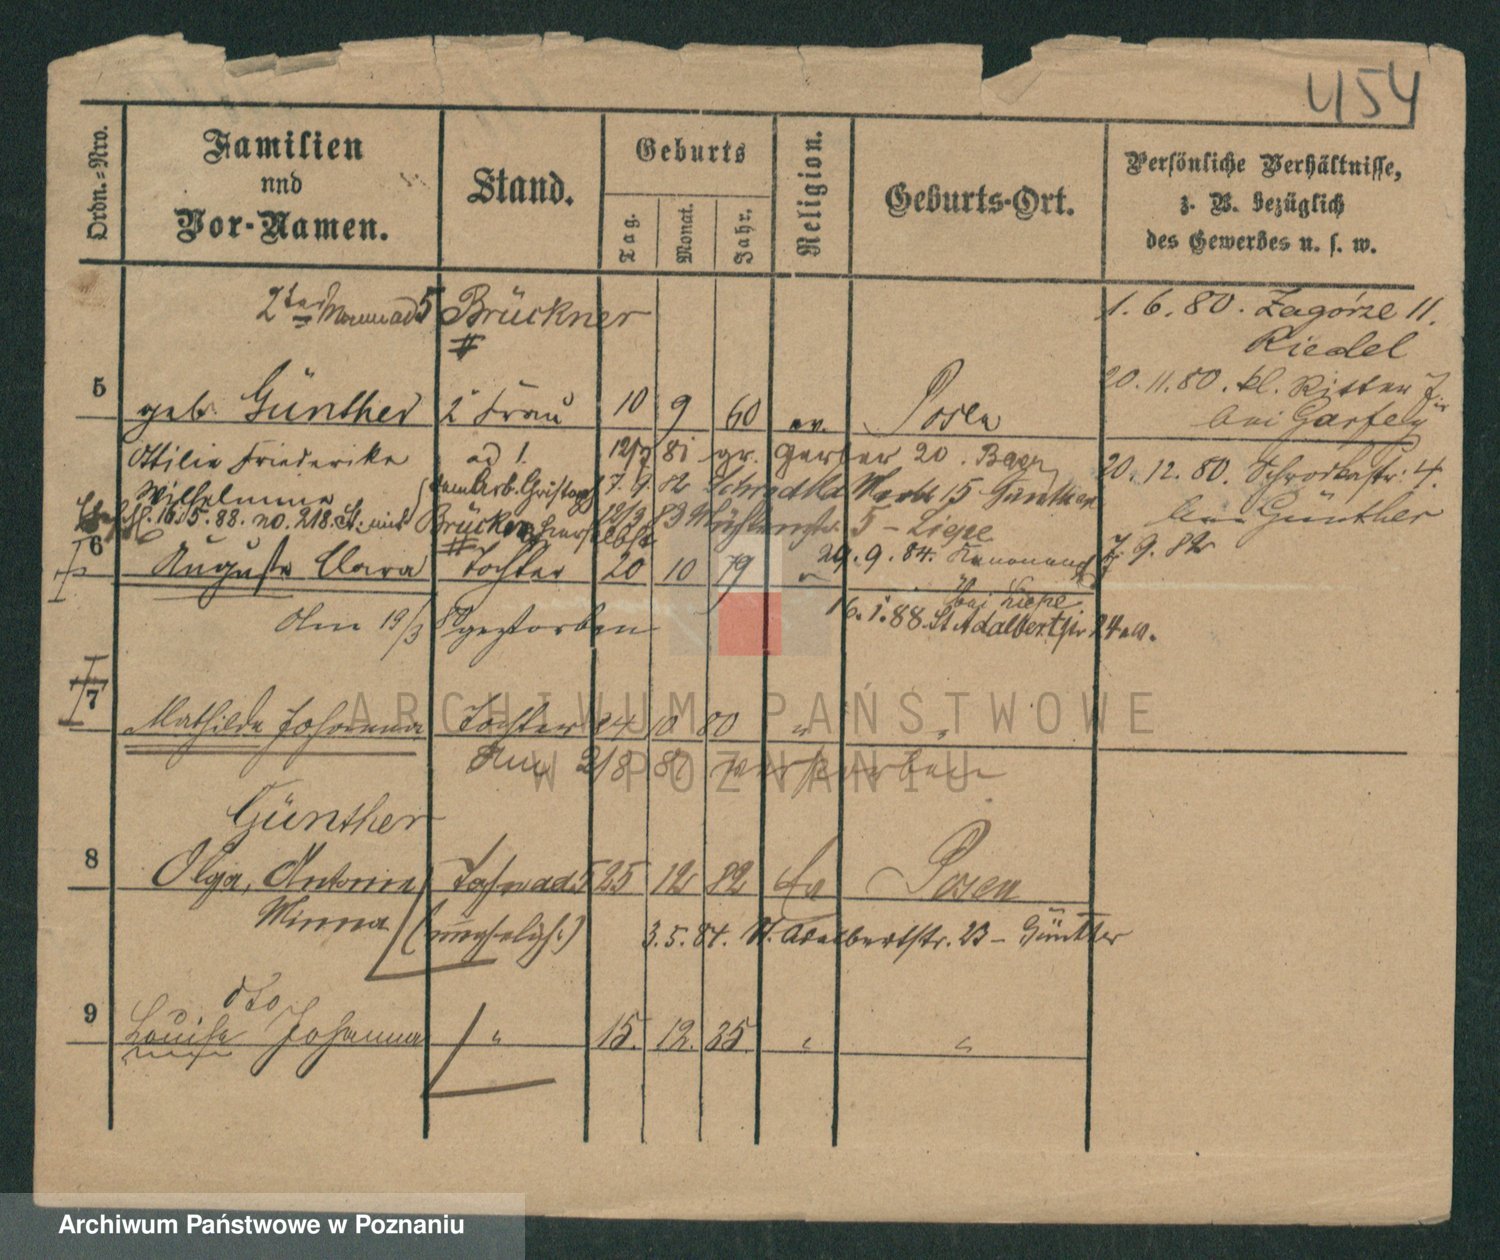 454
Ordn.-Nro.
Familien
nnd
Vor-Namen.
Stand.
Geburts
Tag.
Monat.
Jahr.
Religion.
Geburts-Ort.
Persönliche Verhältnisse,
z. B. bezüglich
des Gewerbes u. s. w.
2ter Mann ad 5 Brückner
1. 6. 80. Zagórze 11.
Riedel
5 geb. Günther 2 Frau 10 9 60 ev. Posen
20. 11. 80. kl. Ritter
bei
Ottilie Friederike ad 1. 12/7 81 gr. Gerber 20.
20. 12. 80. Schrodkastr: 4.
Wilhelmine 7. 9. 82 Schrodka Markt 15 Günther
bei Günther
16. 5. 88. no. 218. St. mit Brückner 12/3 83 5 - Liepe
6 Auguste Clara Tochter 20 10 79 "
29. 9. 84.
7. 9. 82
bei Liepe
Am 19/3 80 gestorben
16. 1. 88. St Adalbertstr 24
7 Mathilde Johanna Tochter 24 10 80 " "
Am 2/8 81 verstorben
Günther
8 Olga, Antonie Tochter ad. 5 25 12 82 Ev Posen
Minna (unehelich.)
3. 5. 84. St. Adalbertstr. 23 - Günther
dto
9 Louise Johanna " 15. 12. 85. " "
ARCHIWUM PAŃSTWOWE
W POZNANIU
Archiwum Państwowe w Poznaniu